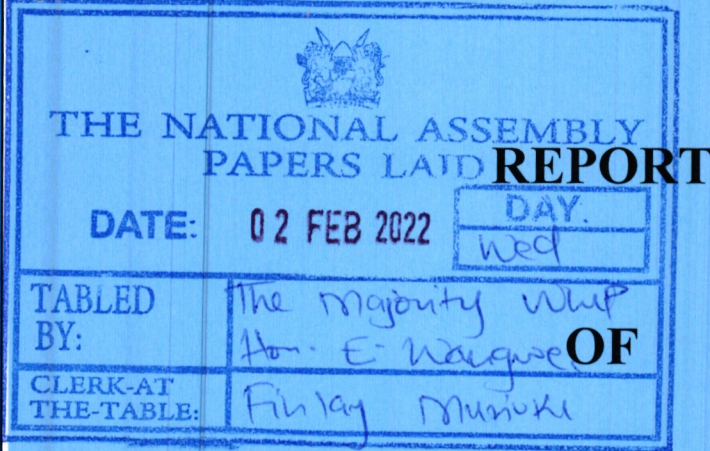 THE NATIONAL ASSEMBLY
PAPERS LAID REPORT
DATE: 02 FEB 2022 DAY.
Wed
TABLED BY: The Majority Whip
Hon. E. Wangwe OF
CLERK-AT THE-TABLE: Finlay Muriuki